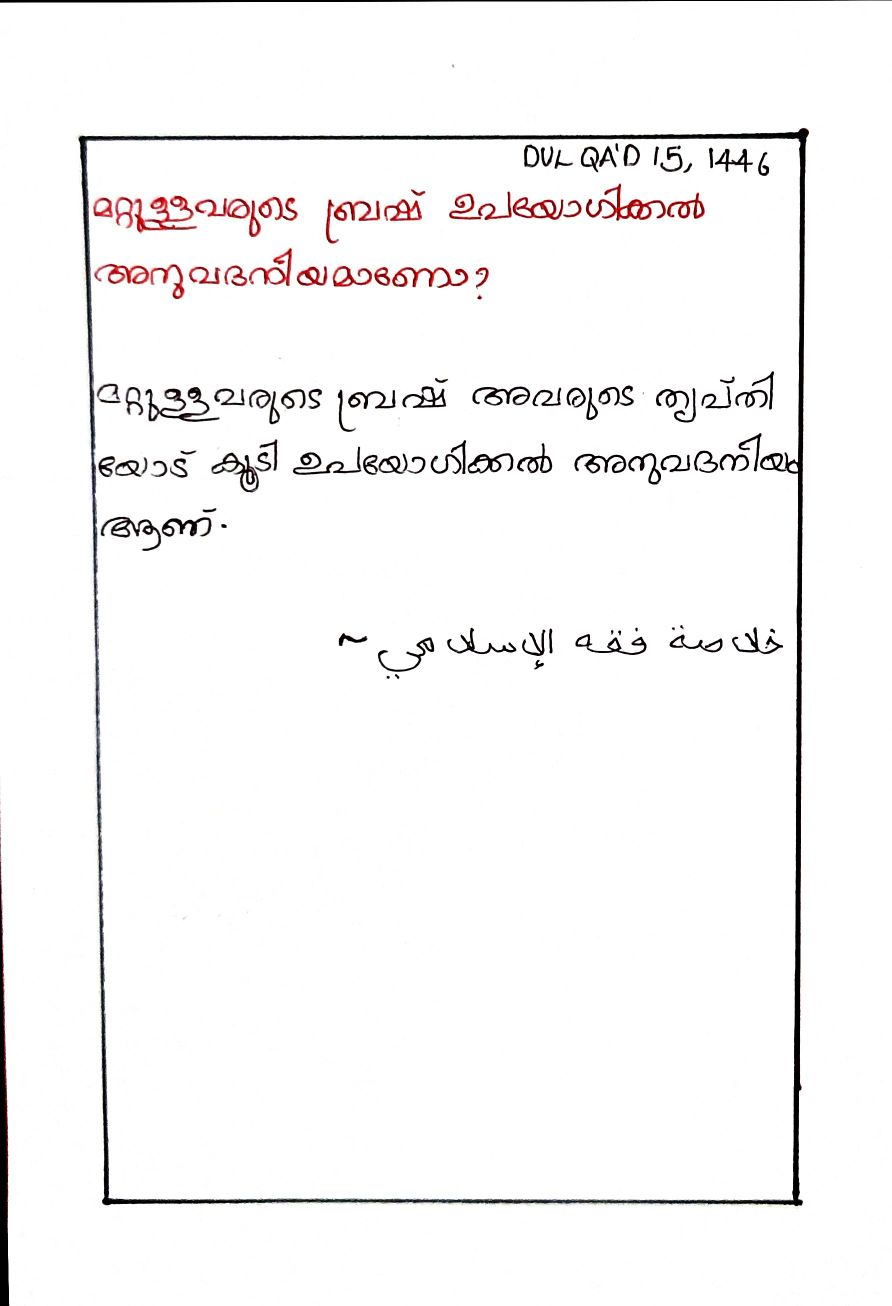 DUL QA'D 15, 1446
മറ്റുള്ളവരുടെ ബ്രഷ് ഉപയോഗിക്കൽ
അനുവദനീയമാണോ?
മറ്റുള്ളവരുടെ ബ്രഷ് അവരുടെ തൃപ്തി
യോട് കൂടി ഉപയോഗിക്കൽ അനുവദനീയം
ആണ്.
خلاصة فقه الإسلامي ~